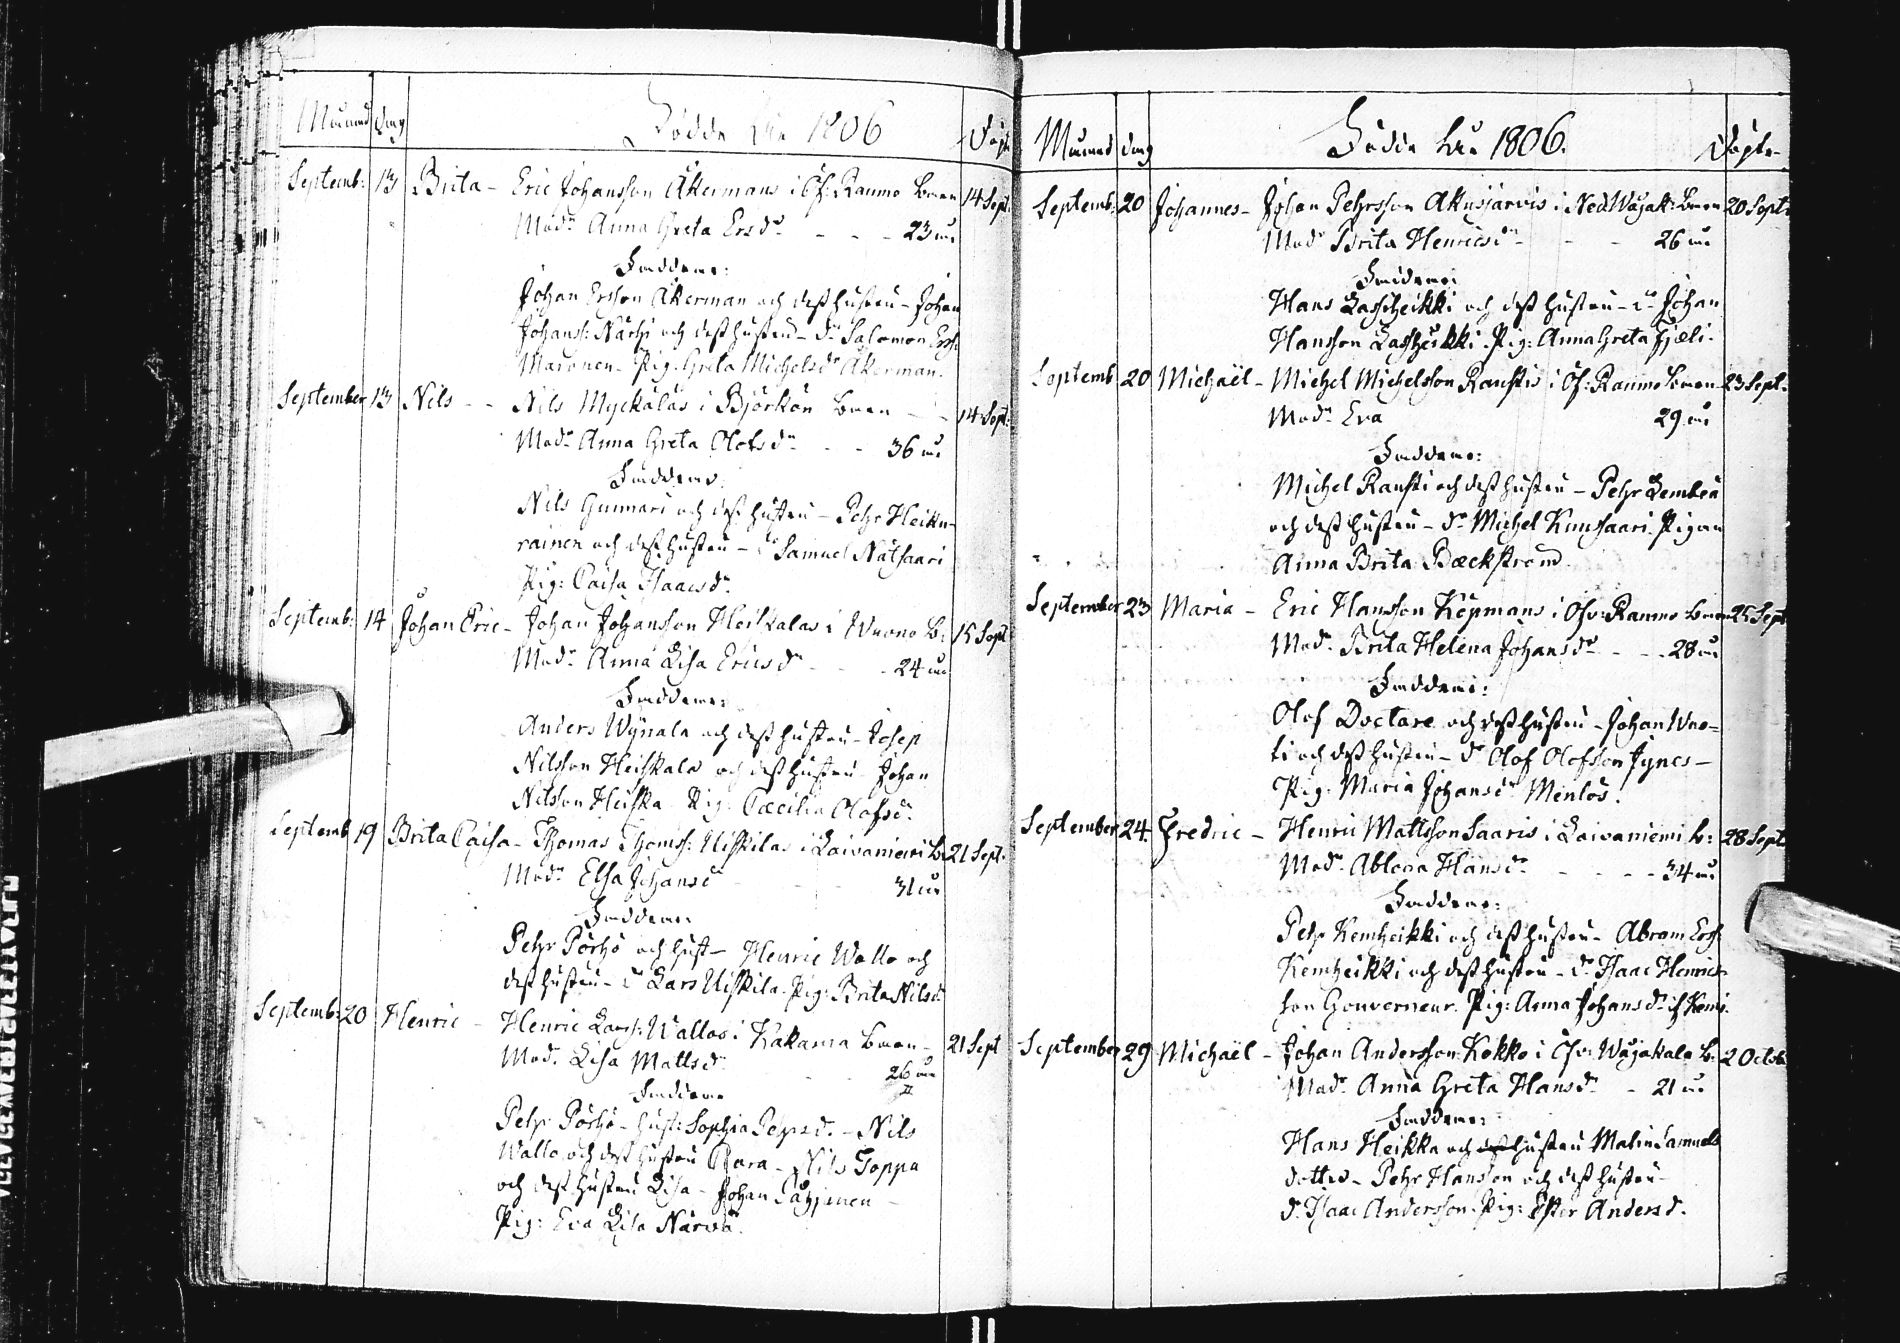 Månad Dag Födde År 1806 Döpte
Septemb: 13 Brita – Eric Johansson Åkermans i Öf: Raumo Barn 14 Sept:
Modr Anna Greta Ersdr – – – 23 år
Faddrar:
Johan Ersson Åkerman och dess hustru – Johan
Johanss: Närhi och dess hustru – dr Salomon Erss:
Maronen – Pig: Greta Michelsdr Åkerman.
September 13 Nils – – Nils Myckälas i Björkön Barn – – 14 Sept:
Modr Anna Greta Olofsdr – – 36 år
Faddrar:
Nils Gunnari och dess hustru – Pehr Heiku-
rainen och dess hustru – dr Samuel Nätsaari
Pig: Caisa Isaacsdr
Septemb: 14 Johan Eric – Johan Johansson Heiskalas i Wuono B: 15 Sept
Modr Anna Lisa Ericsdr – – 24 år
Faddrar:
Anders Wynala och dess hustru – Josep
Nilsson Heiskala och dess hustru – Johan
Nilsson Heiska – Pig: Cæcilia Olofsdr
Septemb 19 Brita Caisa – Thomas Thomss: Uiskilas i Laivaniemi B: 21 Sept:
Modr Elsa Johansdr – – 31 år
Faddrar:
Pehr Pörhö och hust – Henric Wallo och
dess hustru – dr Lars Uiskila. Pig: Brita Nilsdr
Septemb: 20 Henric – Henric Larss: Wallos i Kakarna Barn – 21 Sept
Mod. Lisa Mattsdr – – 26 år
Faddrar
Pehr Pörhö – hust: Sophia Pehrsd. – Nils
Wallo och dess hustru Cara – Nils Toppa
och dess hustru Lisa – Johan
Pig: Eva Lisa Närvä.
Månad Dag Födde År 1806. Döpte
Septemb: 20 Johannes – Johan Pehrsson Akusjärvis i Ned Wojak: Barn 20 Sept:
Modr Brita Henricsdr – – 26 år
Faddrar:
Hans Lassheikki och dess hustru – dr Johan
Hansson Lassheikki. Pig: Anna Greta Fjæli.
Septemb 20 Michaël – Michel Michelsson Rauskis i Öf: Raumo Barn 23 Sept:
Modr Eva 29 år
Faddrar:
Michel Rauski och dess hustru – Pehr Lembea
och dess hustru – dr Michel Kuusaari. Pigan
Anna Brita Bæckström
September 23 Maria – Eric Hansson Köpmans i Öfv: Raumo Barn 25 Sept
Modr Brita Helena Johansdr – – 28 år
Faddrar:
Olof Doctare och dess hustru – Johan Wuo-
ti och dess hustru – dr Olof Olofsson Jynes –
Pig: Maria Johansdr Menlös.
September 24. Fredric – Henric Mattsson Saaris i Laivaniemi B: 28 Sept:
Modr Ablona Hansdr – – – – 34 år
Faddrar:
Pehr Kemheikki och dess hustru – Abram Erss:
Kemheikki och dess hustru – dr Isaac Henrics-
son Gouverneur. Pig: Anna Johansdr if: Kemi.
September 29 Michaël – Johan Andersson Kokko i Öfv: Wojakala B: 2 Octob:
Modr Anna Greta Hansdr – 21 år
Faddrar:
Hans Heikka och dess hustru Malin Samuels
dotter – Pehr Hansson och dess hustru –
dr Isaac Andersson. Pig: Ester Andersd.